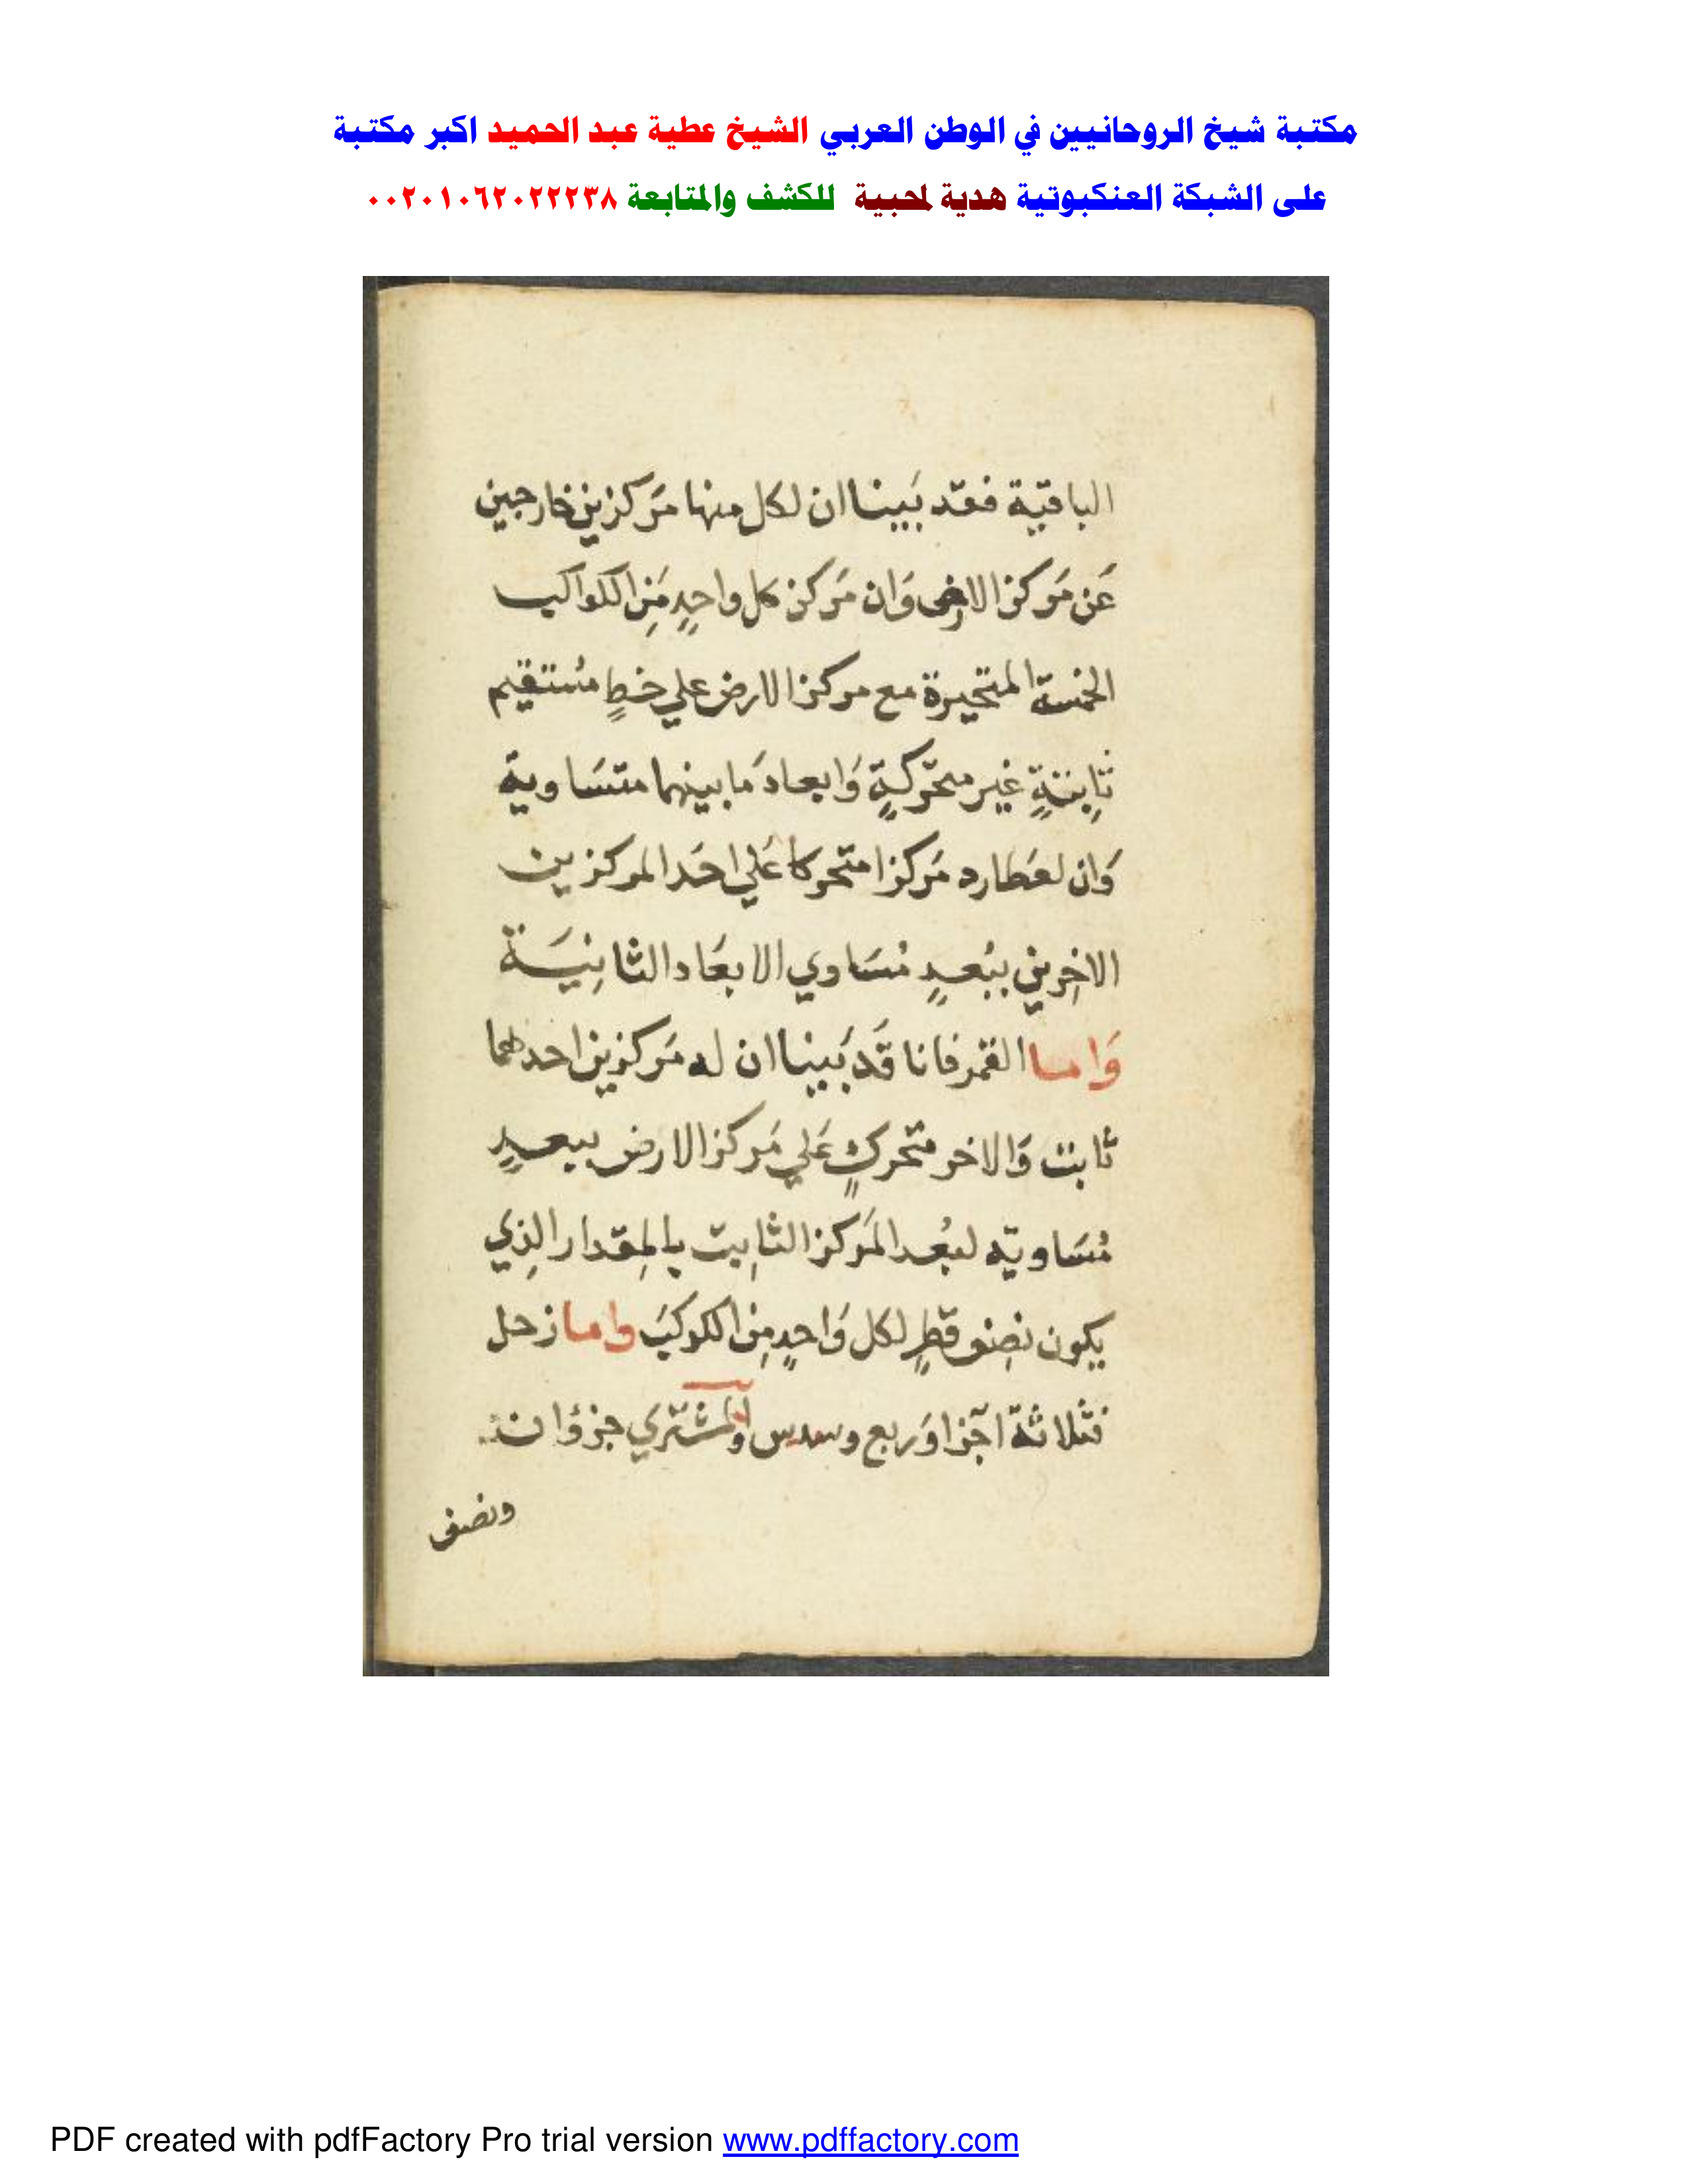 مكتبة شيخ الروحانيين في الوطن العربي الشيخ عطية عبد الحميد اكبر مكتبة
على الشبكة العنكبوتية هدية لمحبية للكشف والمتابعة ٠٠٢٠١٠٦٢٠٢٢٢٣٨
الباقية فقد بَينا ان لكل منها مَركزين خارجين
عَن مَركز الارض وَان مَركز كل واحدٍ مَن الكواكب
الخمسة المتحيرة مع مركز الارض علي خطٍ مُستقيم
ثابتةٍ غير متحركةٍ وَابعادَ ما بينهما متسَاوية
وَان لعَطارد مَركزا متحركا عَلي احَد المركزين
الاخِرين ببُعدٍ مُسَاوي الابعَاد الثانِيَة
وَاما القمر فانا قَد بَينا ان له مَركزين احدهما
ثابت وَالاخر متحركٍ عَلي مَركز الارض ببعدٍ
مُسَاوية لبُعد المَركز الثابِت بالمِقدار الذِي
يكون نصِف قطرٍ لكل وَاحدٍ مِن الكوكبَ واما زحل
فثلاثة اجزا وَربع وسدس والمشتَري جزؤان
ونصف
PDF created with pdfFactory Pro trial version www.pdffactory.com